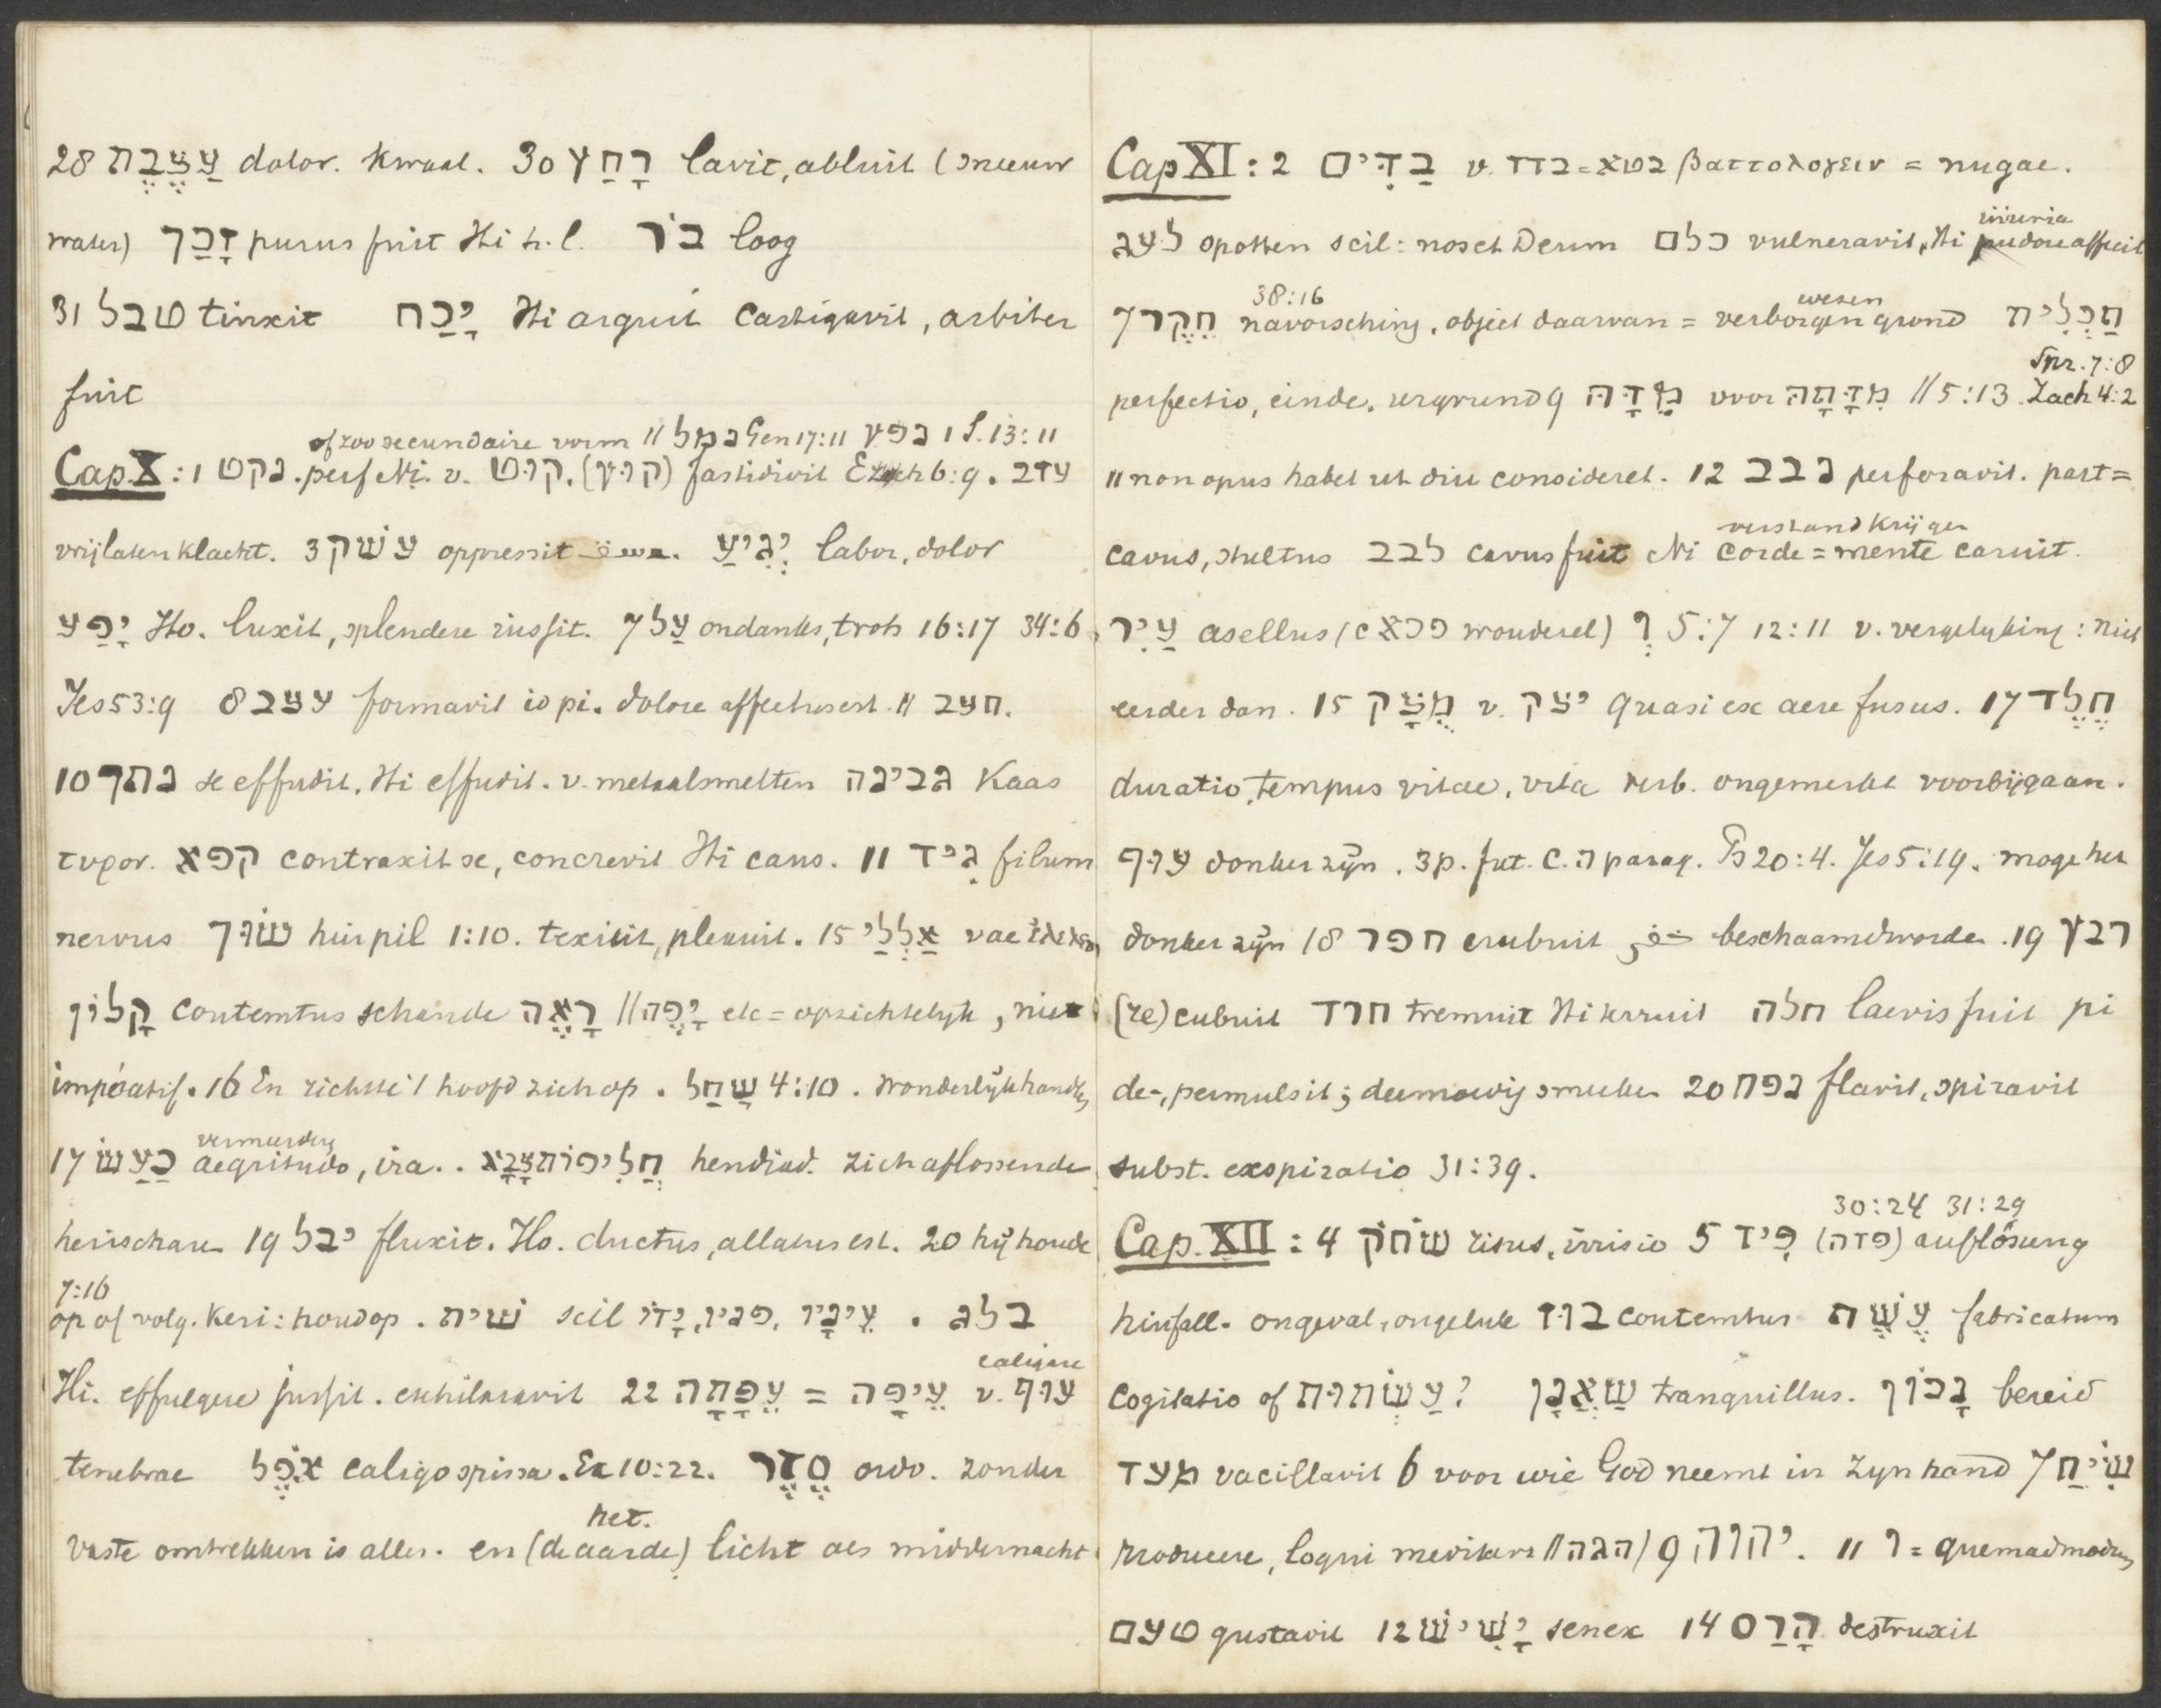 28 עַצֶּבֶת dolor. kwaal. 30 רָחַץ lavit, abluit (sneeuw
water) זָכַךְ purus fuit Hi h.l. בּוֹר loog
31 טבל tinxit יָכַח Hi arguit castigavit, arbiter
fuit
of zoo secundaire vorm // נמל Gen 17:11 נפץ 1 S. 13:11
Cap. X: 1 נקט. perf Ni. v. קוּט. (קוּץ) fastidivit Ezech 6:9. עזב
vrijlaten klacht. 3 עשׁק oppressit عسق. יְגִיעַ labor, dolor
יָפַע Ho. luxit, splendere iussit. 7 עַל ondanks, trots 16:17 34:6
Jes 53:9 8 עצב formavit io pi. dolore affectus est. // חצב.
10 נתך se effudit. Hi effudit. v. metaalsmelten גבינה Kaas
τυρον. קפא contraxit se, concrevit Hi caus. 11 גִיד filum
nervus שׂוּךְ huispil 1:10. texiit, plexuit. 15 אַלְלַי vae
קָלוֹן contemtus schande רָאֶה // יָפֶה etc = opzichtelyk, niet
imperatif. 16 En richtte 't hoofd zich op. שַׁחַל 4:10. Wonderlyk handlen
vermeerdering
17 כַּעַשׂ aegritudo, ira.. חֲלִיפוֹת צָבָא hendiad. zich aflossende
heirscharen 19 יבל fluxit. Ho. ductus, allatus est. 20 hy houde
7:16
op of volg. Keri: houd op. שׁית scil עֵינָיו, פניו, יָדוֹ . בלג
caligare
Hi. effulgere jussit. exhilaravit 22 עֵפָתָה = עֵיפָה v. עוּף
tenebrae אֹפֶל caligo spissa. Ex 10:22. סֵדֶר ordo. zonder
het.
vaste omtrekken is alles. en (de aarde) licht als middernacht
Cap XI: 2 בַדִּים v. בדד = בטא βαττολογειν = nugae.
iniuria
לעג spotten scil: noset Deum כלם vulneravit, Hi pudore affecit
38:16 wezen
7 חֵקֶר navorsching, object daarvan = verborgen grond תַכְלִית
Spr. 7:8
perfectio, einde. urgrund 9 מִדָּה voor מִדָּתָה // 5:13 Zach 4:2
11 non opus habet ut diu consideret. 12 נבב perforavit. part =
verstand krijgen
cavus, stultus לבב cavus fuit Ni corde = mente caruit.
עַיִר asellus (פרא woudezel) וְ 5:7 12:11 v. vergelyking: niet
eerder dan. 15 מֻצָק v. יצק quasi ex aere fusus. 17 חֶלֶד
duratio, tempus vitae, vita verb. ongemerkt voorbijgaan.
עוּף donker zijn. 3 p. fut. c. ה parag. Ps 20:4. Jes 5:19. moge het
donker zijn 18 חפר erubuit خفر beschaamd worden. 19 רבץ
(re)cubuit חרד tremuit Hi terruit חלה laevis fuit pi
de-, permulsit; deemoedig smeeken 20 נפח flavit, spiravit
subst. exspiratio 31:39.
30:24 31:29
Cap. XII: 4 שׂחֹק risus, irrisio 5 פִּיד (פדה) auflösung
hinfall. ongeval, ongeluk בּוּז contemtus עֶשֶׁת fabricatum
cogitatio of עַשְׁתוּת? שַׁאֲנָן tranquillus. נָכוֹן bereid
מעד vacillavit 6 voor wie God neemt in zyn hand 7 שִׂיחַ
producere, loqui meditari // הגה) 9 יהוה. 11 ו = quemadmodum
טעם gustavit 12 יָשִׁישׁ senex 14 הָרַס destruxit